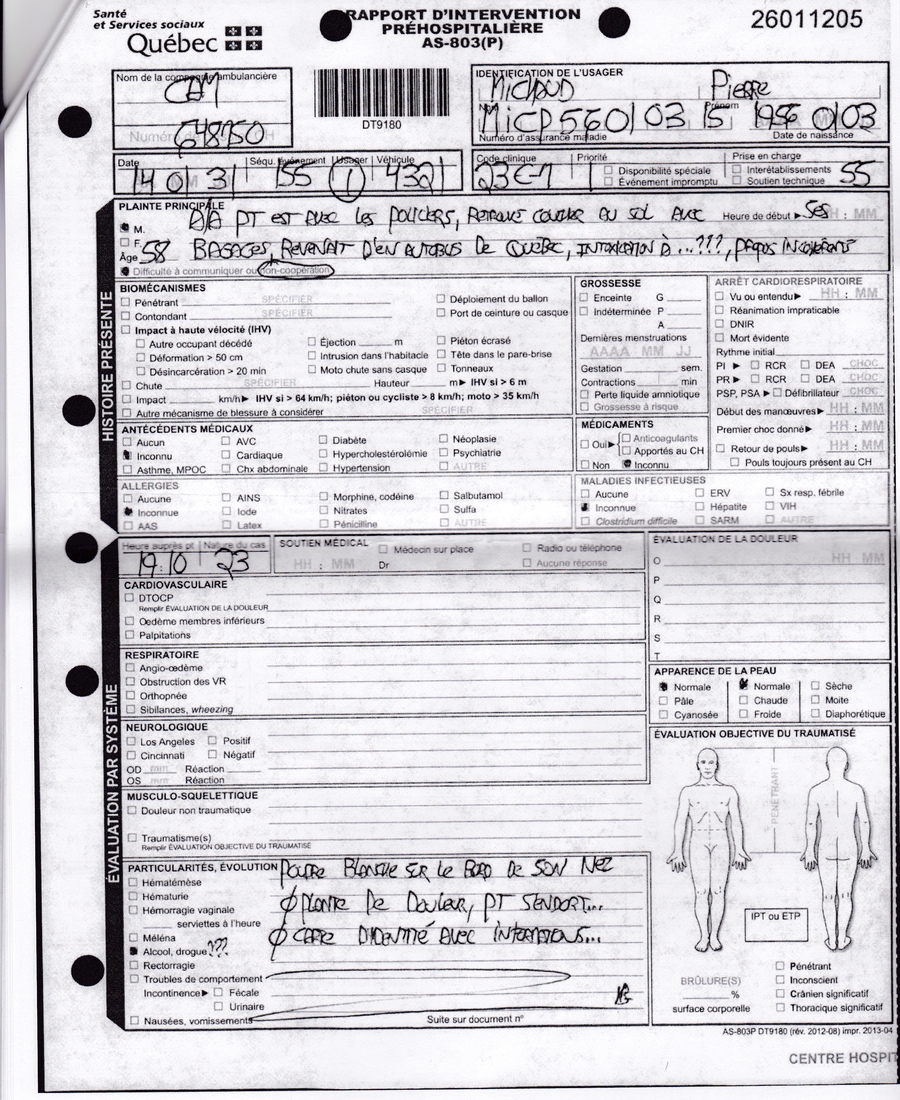 Santé
et Services sociaux
Québec
RAPPORT D'INTERVENTION
PRÉHOSPITALIÈRE
AS-803(P)
26011205
Nom de la compagnie ambulancière
CAM
DT9180
IDENTIFICATION DE L'USAGER
MICHAUD Pierre
Nom Prénom
Numéro d'assurance maladie Date de naissance
Date Séqu. Événement Usager Véhicule
14 03 155 1 4321
Code clinique Priorité Prise en charge
23C-1 1 55
Disponibilité spéciale Interétablissements
Événement impromptu Soutien technique
PLAINTE PRINCIPALE
M. PT EST AVEC LES POLICIERS, RETROUVÉ COUCHER AU SOL AVEC Heure de début HH : MM
F.
Âge 58 BAGAGES, REVENAIT D'EN AUTOBUS DE QUÉBEC, INTOXICATION À...???, PROPOS INCOHÉRENTS
Difficulté à communiquer ou non-coopération
HISTOIRE PRÉSENTE
BIOMÉCANISMES
Pénétrant SPÉCIFIER Déploiement du ballon
Contondant SPÉCIFIER Port de ceinture ou casque
Impact à haute vélocité (IHV)
Autre occupant décédé Éjection m Piéton écrasé
Déformation > 50 cm Intrusion dans l'habitacle Tête dans le pare-brise
Désincarcération > 20 min Moto chute sans casque Tonneaux
Chute SPÉCIFIER Hauteur m IHV si > 6 m
Impact km/h IHV si > 64 km/h; piéton ou cycliste > 8 km/h; moto > 35 km/h
Autre mécanisme de blessure à considérer SPÉCIFIER
GROSSESSE
Enceinte G
Indéterminée P
A
Dernières menstruations
AAAA MM JJ
Gestation sem.
Contractions min
Perte liquide amniotique
Grossesse à risque
ARRÊT CARDIORESPIRATOIRE
Vu ou entendu HH : MM
Réanimation impraticable
DNIR
Mort évidente
Rythme initial
PI RCR DEA CHOC
PR RCR DEA CHOC
PSP, PSA Défibrillateur CHOC
Début des manœuvres HH : MM
Premier choc donné HH : MM
Retour de pouls HH : MM
Pouls toujours présent au CH
ANTÉCÉDENTS MÉDICAUX
Aucun AVC Diabète Néoplasie
Inconnu Cardiaque Hypercholestérolémie Psychiatrie
Asthme, MPOC Chx abdominale Hypertension AUTRE
MÉDICAMENTS
Oui Anticoagulants
Apportés au CH
Non Inconnu
ALLERGIES
Aucune AINS Morphine, codéine Salbutamol
Inconnue Iode Nitrates Sulfa
AAS Latex Pénicilline AUTRE
MALADIES INFECTIEUSES
Aucune ERV Sx resp. fébrile
Inconnue Hépatite VIH
Clostridium difficile SARM AUTRE
ÉVALUATION PAR SYSTÈME
Heure auprès pt Nature du cas
19:10 23
SOUTIEN MÉDICAL Médecin sur place Radio ou téléphone
HH : MM Dr Aucune réponse
ÉVALUATION DE LA DOULEUR
O HH : MM
P
Q
R
S
T
CARDIOVASCULAIRE
DTOCP
Remplir ÉVALUATION DE LA DOULEUR
Œdème membres inférieurs
Palpitations
RESPIRATOIRE
Angio-œdème
Obstruction des VR
Orthopnée
Sibilances, wheezing
APPARENCE DE LA PEAU
Normale Normale Sèche
Pâle Chaude Moite
Cyanosée Froide Diaphorétique
NEUROLOGIQUE
Los Angeles Positif
Cincinnati Négatif
OD mm Réaction
OS mm Réaction
MUSCULO-SQUELETTIQUE
Douleur non traumatique
Traumatisme(s)
Remplir ÉVALUATION OBJECTIVE DU TRAUMATISÉ
ÉVALUATION OBJECTIVE DU TRAUMATISÉ
PÉNÉTRANT
IPT ou ETP
BRÛLURE(S)
%
surface corporelle
Pénétrant
Inconscient
Crânien significatif
Thoracique significatif
PARTICULARITÉS, ÉVOLUTION POUDRE BLANCHE SUR LE BORD DE SON NEZ
Hématémèse
Hématurie
Hémorragie vaginale Ø PLAINTE DE DOULEUR, PT S'ENDORT...
serviettes à l'heure
Méléna Ø CARTE D'IDENTITÉ AVEC INFORMATIONS...
Alcool, drogue ???
Rectorragie
Troubles de comportement
Incontinence Fécale
Urinaire
Nausées, vomissements Suite sur document n°
AS-803P DT9180 (rév. 2012-08) impr. 2013-04
CENTRE HOSPIT